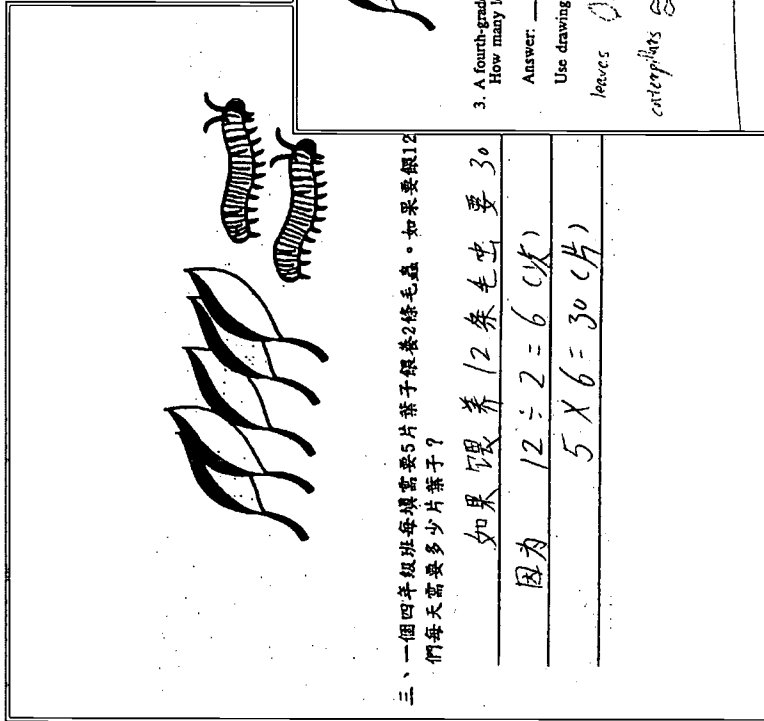 三、一個四年級班每填需要5片葉子餵養2條毛蟲。如果要餵12
們每天需要多少片葉子？
如果喂养12条毛虫要30
因为 12÷2=6(次)
5×6=30(片)
3. A fourth-grade
How many l
Answer:
Use drawing
leaves
caterpillars